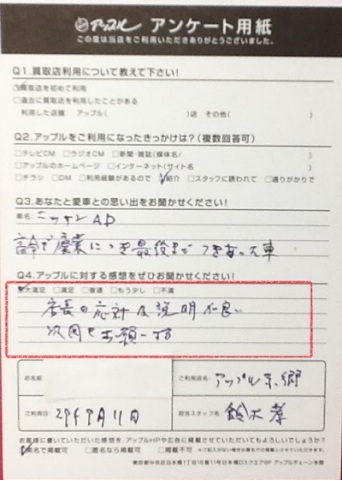 アップル アンケート用紙
この度は当店をご利用いただきありがとうございました。
Q1.買取店利用について教えて下さい!
☑買取店を初めて利用
□過去に買取店を利用したことがある
利用した店種: アップル( )店 その他( )
Q2.アップルをご利用になったきっかけは?(複数回答可)
□テレビCM □ラジオCM □新聞・雑誌(媒体名/ )
□アップルのホームページ □インターネット(サイト名 )
□チラシ □DM □利用経験があるので ☑紹介 □スタッフに誘われて □通りがかりで
Q3.あなたと愛車との思い出をお聞かせください!
車名: ニッサンAD
齢で廃業につき最後まで つきあった車
Q4.アップルに対する感想をぜひお聞かせください!
☑大満足 □満足 □普通 □もう少し □不満
店長の応対及説明 良い
次回もお願いする
お名前
ご利用店名 アップル
ご利用日 29年9月11日
担当スタッフ名 鈴木孝
お客様に書いていただいた感想を、アップルHPや広告に掲載させていただいてもよろしいでしょうか?
☑実名で掲載可 □匿名なら掲載可 □掲載不可
東京都中央区日本橋1丁目16番11号日本橋DスクエアBF アップルチェーン本部